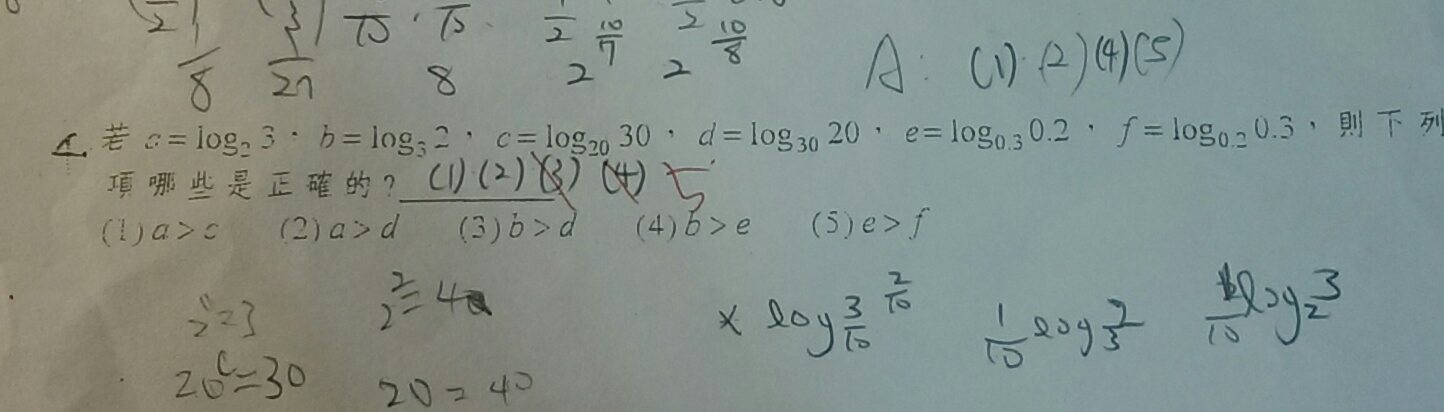 1/2 1/3 1/10 · 1/10 · 1/2 10/7 1/2 10/8
1/8 1/27 8 2 2 A: (1)·(2)(4)(5)
若 a=log₂3 · b=log₃2 · c=log₂₀30 · d=log₃₀20 · e=log₀.₃0.2 · f=log₀.₂0.3 · 則下列
項哪些是正確的? (1)(2)(3)(4) 5
(1)a>c (2)a>d (3)b>d (4)b>e (5)e>f
2²=4 × log 3/10 2/10 1/10 log 2/3 1/10 log₂3
20ᶜ=30 20=40